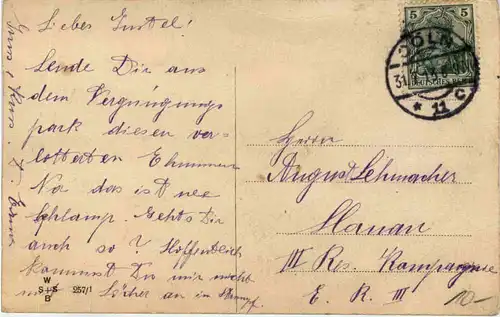 Liebes Gustel!
Sende Dir aus
dem Vergnügungs
park diesen ver-
lotterten Ehmann
Na das ist nee
Schlamp. Gehts Dir
auch so? Hoffentlich
kommst Du mir nicht
m Löcher an in Strumpf.
W
S+S
B
257/1
5
DEUTSCHES REICH
CÖLN
31.
* 11 c
Herrn
August Schmacher
Hanau
III Res. Kompagnie
E. R. III
10-